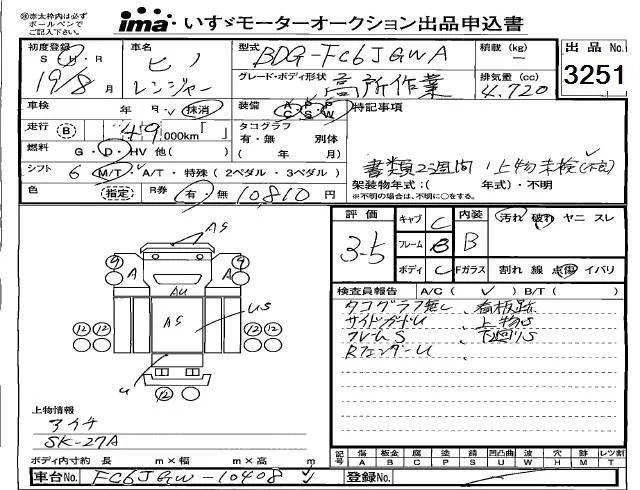 ※赤太枠内は必ずボールペンでご記入下さい。
ima・いすゞモーターオークション出品申込書
出品 No. 3251
初度登録 S・H・R 19/8月
車名 ヒノ レンジャー
型式 BDG-FC6JGWA
グレード・ボディ形状 高所作業
積載 (kg) ー
排気量 (cc) 4.720
車検 年 月 抹消
装備 A/C P/S P/W
特記事項
走行 B 49,000km「 」
タコグラフ 有・無 別体 ( 年 月)
燃料 G・D・HV 他( )
シフト 6 M/T・A/T・特殊 (2ペダル・3ペダル)
書類2週間、上物未検(不良)
架装物年式:( 年式)・不明
※不明の場合は、不明に○をする。
色 (指定) R券 有・無 10810円
評価 3-5
キャブ C 内装 B
フレーム B
ボディ C Fガラス
汚れ 破れ ヤニ スレ
割れ 線 点傷 イバリ
検査員報告 A/C( ✓ ) B/T( )
タコグラフ無し、看板跡
サイドガードU、上物S
フレームS、下廻りS
RフェンダーU
AS
9 9
A A
AU
AS US
12 12 12 12
U
12
上物情報
アイチ
SK-27A
ボディ内寸約 長 m×幅 m×高 m
記号 傷 A 板金 B 腐 C 塗 P 錆 S 凹凸曲 U 波 W 穴 H 跡 M レツ割 T
車台No. FC6JGW-10408
登録No.